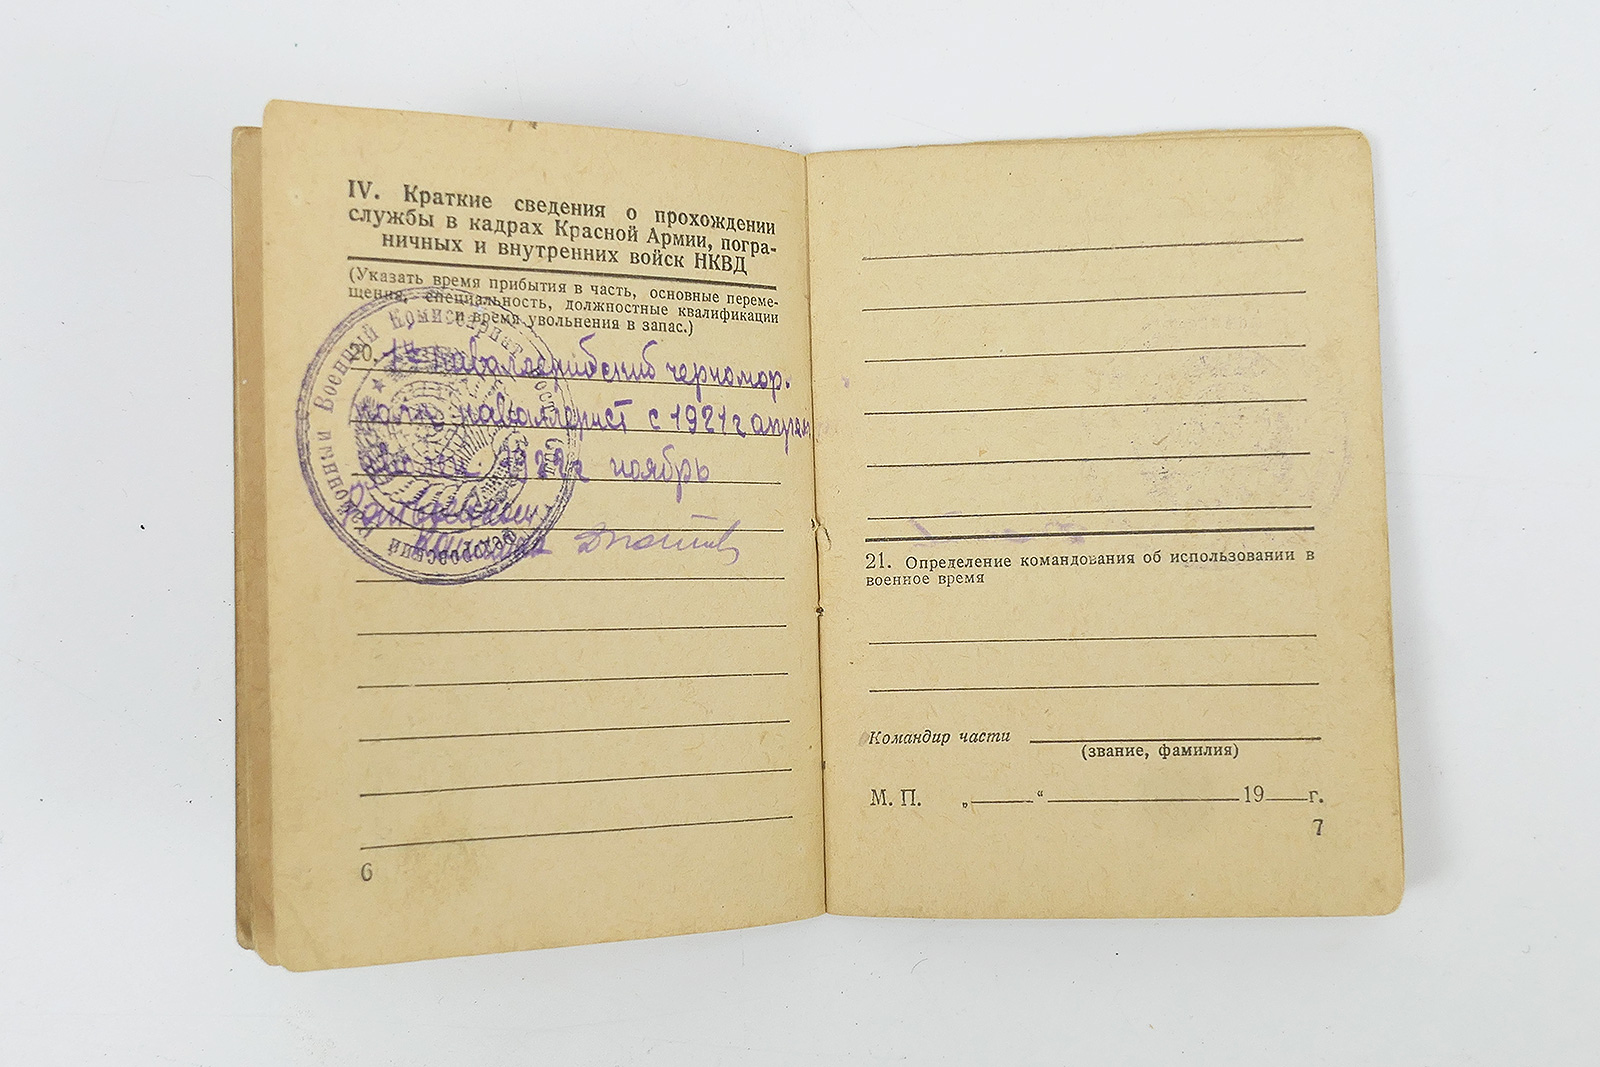 IV. Краткие сведения о прохождении
службы в кадрах Красной Армии, погра-
ничных и внутренних войск НКВД
(Указать время прибытия в часть, основные переме-
щения, специальность, должностные квалификации
и время увольнения в запас.)
Районный Военный Комиссариат
20. 1й кавалерийский черномор.
кавалерист с 1921г
1922г ноябрь
6
21. Определение командования об использовании в
военное время
Командир части
(звание, фамилия)
М. П. „ “ 19 г.
7